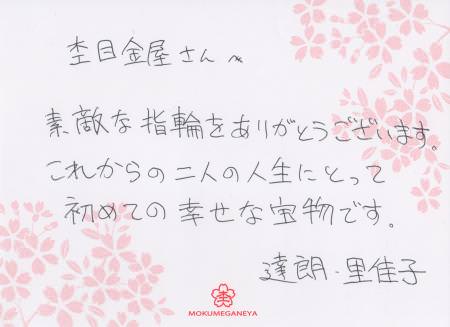 杢目金屋さんへ
素敵な指輪をありがとうございます。
これからの二人の人生にとって
初めての幸せな宝物です。
達朗・里佳子
杢
MOKUMEGANEYA